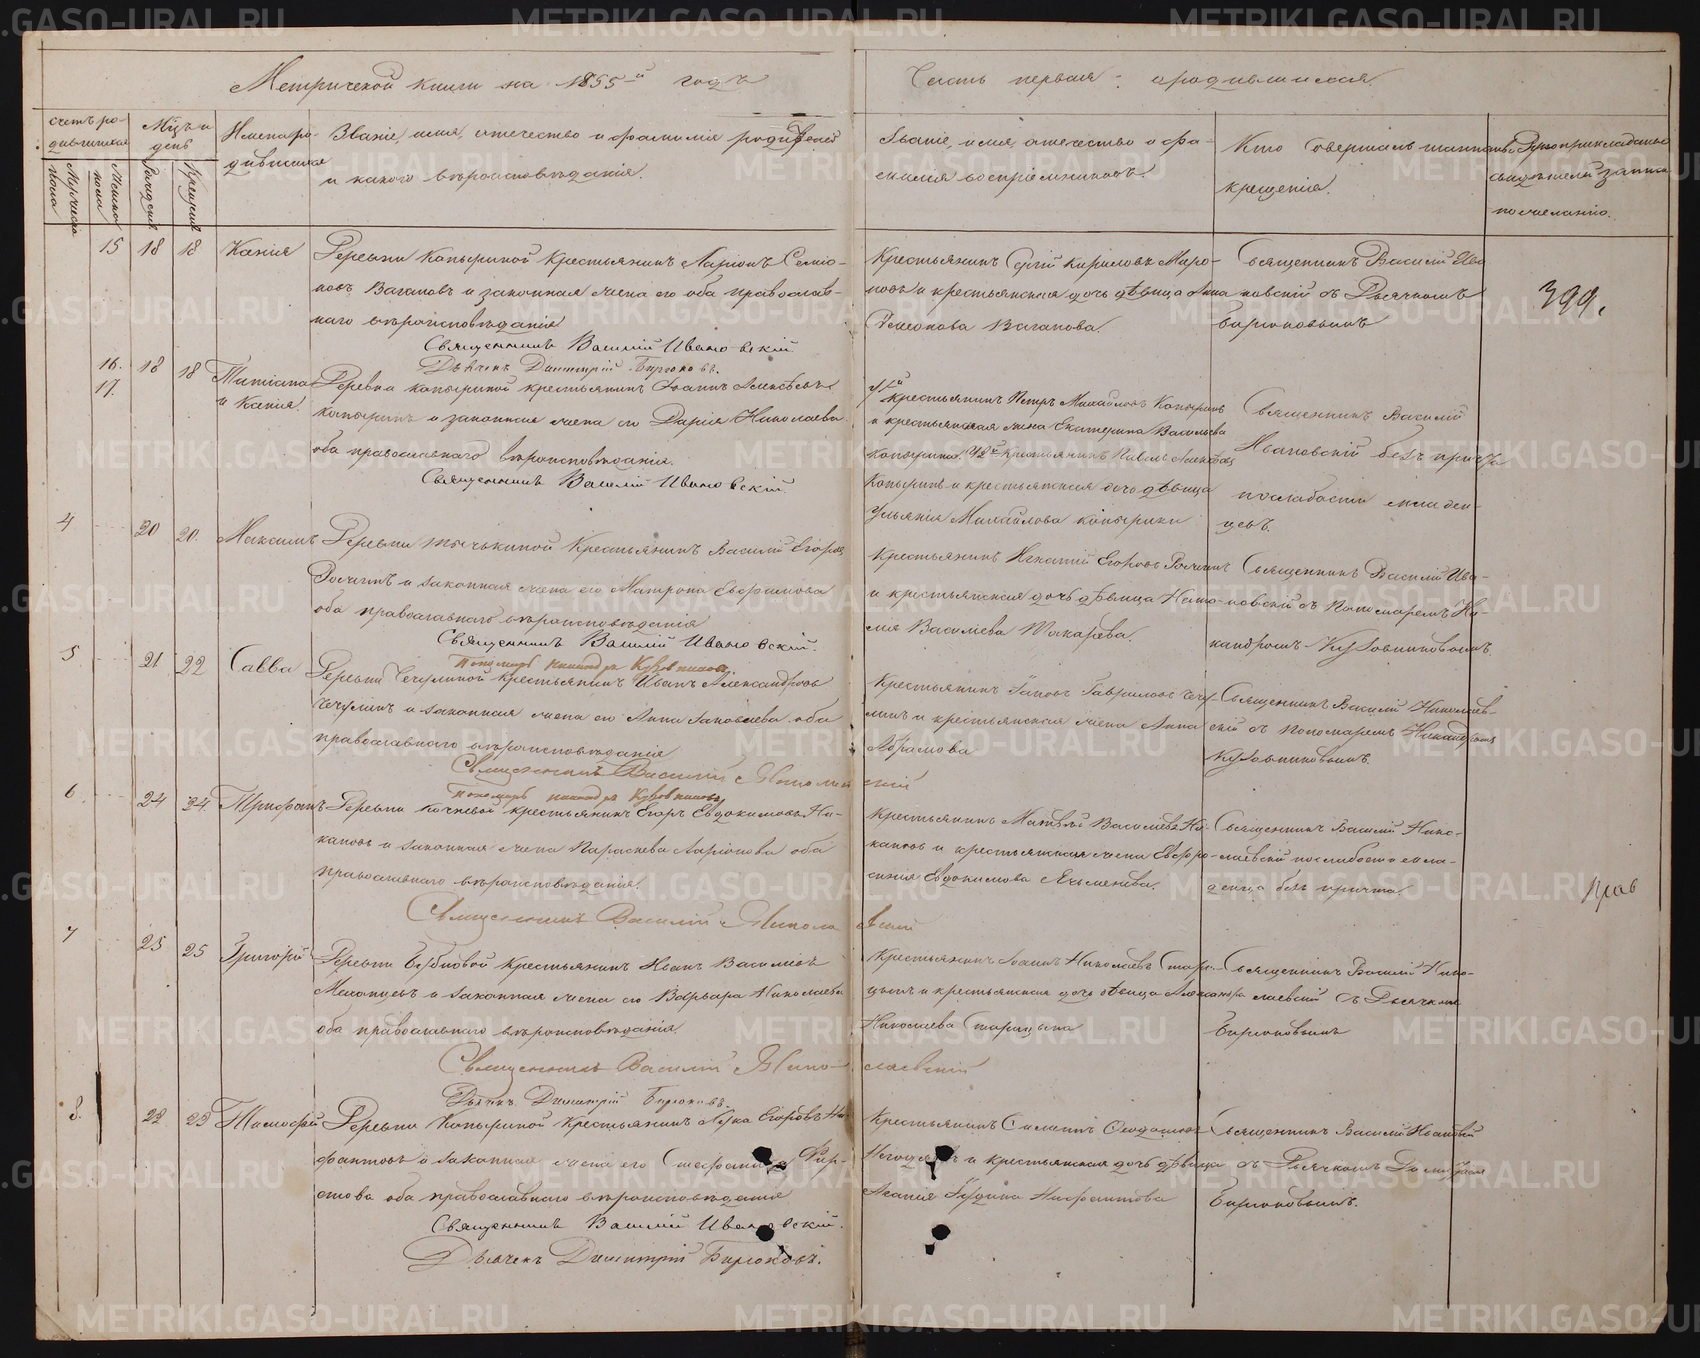 Метрической книги на 1855й годъ
Часть первая: о родившихся.
счетъ родившихся
Мужеска пола
Женска пола
Мцъ и день
Рожденія
Крещенія
Имена родившихся
Званіе, имя, отечество и фамилія родителей
и какого вѣроисповѣданія.
Званіе, имя, отечество и фамилія воспріемниковъ.
Кто совершалъ таинство
крещенія.
Рукоприкладство
свидѣтелей записи
по желанію.
15 18 18 Ксенія
Деревни Копыриной крестьянинъ Ларіонъ Семіоновъ
Вагановъ и законная жена его оба православнаго
вѣроисповѣданія
Священникъ Василій Ивановскій.
Дьячекъ Димитрій Бирюковъ.
Крестьянинъ Сергій Кириловъ Мироновъ
и крестьянская дочь дѣвица Анна
Ваганова.
Священникъ Василій Ивановскій
съ Дьячкомъ
Бирюковымъ
399.
16. 17. 18 18 Татіана и Ксенія.
Деревни Копыриной крестьянинъ Іоаннъ Алексѣевъ
Копыринъ и законная жена его Дарія Николаева
оба православнаго вѣроисповѣданія.
Священникъ Василій Ивановскій.
У 1й крестьянинъ Петръ Михайловъ Копыринъ
и крестьянская жена Екатерина Васильева
Копырина. У 2й крестьянинъ Павелъ Алексѣевъ
Копыринъ и крестьянская дочь дѣвица
Ульянія Михайлова Копырина
Священникъ Василій
Ивановскій безъ причта
по слабости младенцевъ.
4 20 20. Максимъ
Деревни крестьянинъ Василій Егоровъ
и законная жена его Матрона Ефимова
оба православнаго вѣроисповѣданія
Священникъ Василій Ивановскій.
Пономарь Никандръ Кузовниковъ
Крестьянинъ Игнатій Егоровъ
и крестьянская дочь дѣвица Наталія
Васильева Токарева.
Священникъ Василій Ивановскій
съ Пономаремъ Никандромъ
Кузовниковымъ.
5 21 22 Савва
Деревни Чечулиной крестьянинъ Иванъ Александровъ
Чечулинъ и законная жена его Анна Іаковлева оба
православнаго вѣроисповѣданія
Священникъ Василій Николаевскій
Пономарь Никандръ Кузовниковъ
Крестьянинъ Іаковъ Гавриловъ Чечулинъ
и крестьянская жена Анна
Абрамова
Священникъ Василій Николаевскій
съ пономаремъ Никандромъ
Кузовниковымъ.
6 24 24 Трифонъ
Деревни Кочневой крестьянинъ Егоръ Евдокимовъ
и законная жена Параскева Ларіонова оба
православнаго вѣроисповѣданія.
Священникъ Василій Николаевскій
Крестьянинъ Матвѣй Васильевъ
и крестьянская жена Евфросинія
Евдокимова Ячменева.
Священникъ Василій Николаевскій
по слабости младенца
безъ причта
7 25 25 Григорій
Деревни Бубновой крестьянинъ Иванъ Василіевъ
и законная жена его Варвара Николаева
оба православнаго вѣроисповѣданія.
Священникъ Василій Николаевскій
Дьячекъ Димитрій Бирюковъ.
Крестьянинъ Іоаннъ Николаевъ Старицынъ
и крестьянская дочь дѣвица Александра
Николаева Старицына
Священникъ Василій Николаевскій
съ Дьячкомъ
Бирюковымъ
8. Тимофей
Деревни Копыриной крестьянинъ Лука Егоровъ
и законная жена его Стефанида
оба православнаго вѣроисповѣданія
Священникъ Василій Ивановскій.
Дьячекъ Димитрій Бирюковъ.
Крестьянинъ
и крестьянская дочь дѣвица
Священникъ Василій Ивановскій
съ Дьячкомъ Димитріемъ
Бирюковымъ.
METRIKI.GASO-URAL.RU